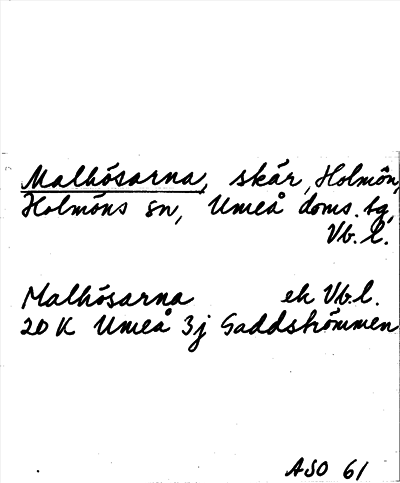 Malhösarna, skär, Holmön,
Holmöns sn, Umeå doms. tg,
Vb. l.
Malhösarna ek Vb. l.
20 K Umeå 3j Gaddströmmen
ASO 61